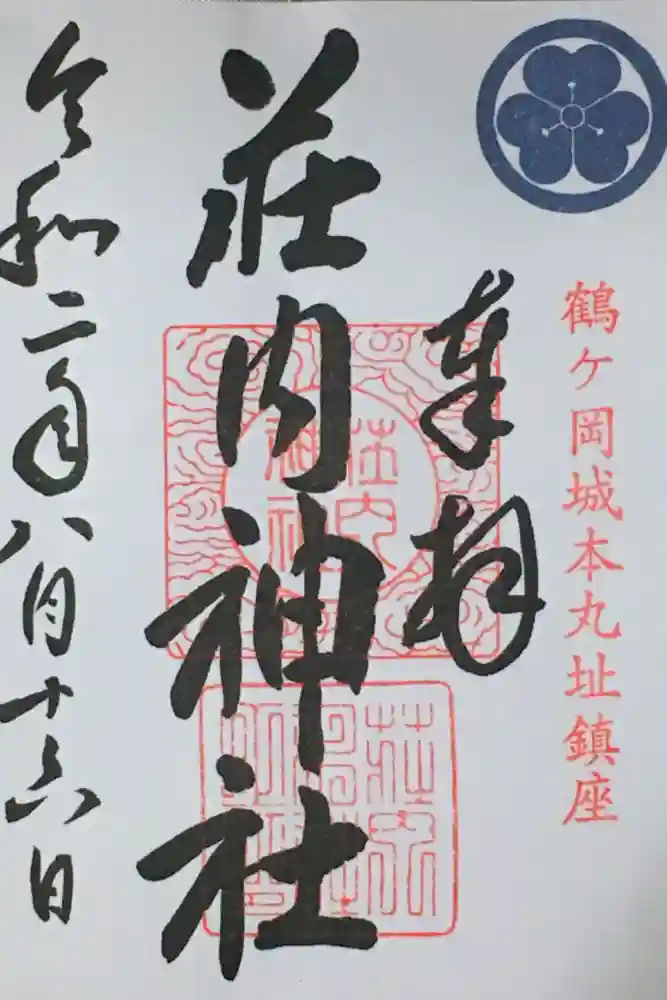 鶴ケ岡城本丸址鎮座
奉拝
荘内神社
荘内
神社
令和二年八月十六日